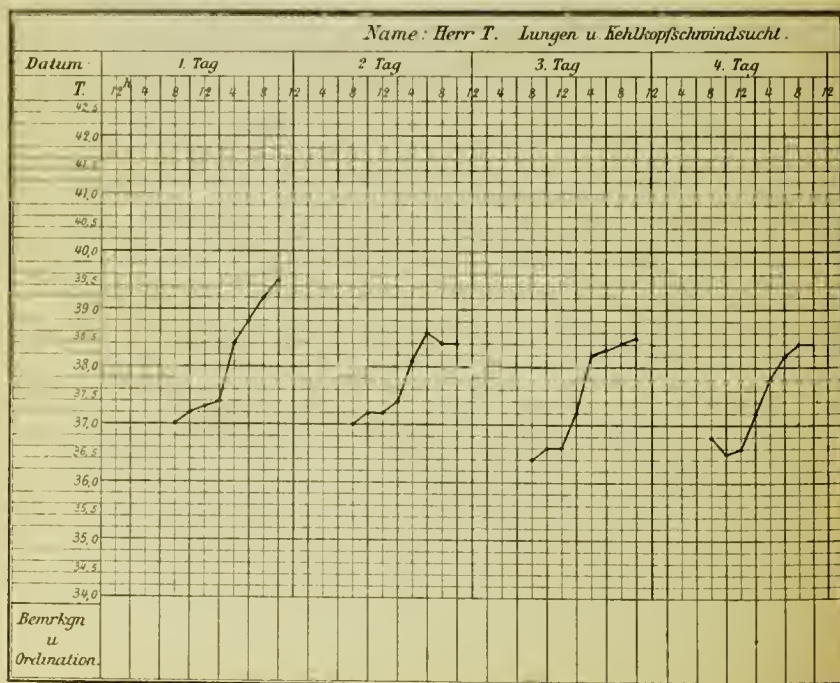 Name: Herr T. Lungen u. Kehlkopfschwindsucht.
Datum 1. Tag 2 Tag 3. Tag 4. Tag
T. 12h 4 8 12 4 8 12 4 8 12 4 8 12 4 8 12 4 8 12 4 8 12 4 8 12
42,5
42,0
41,5
41,0
40,5
40,0
39,5
39,0
38,5
38,0
37,5
37,0
36,5
36,0
35,5
35,0
34,5
34,0
Bemrkgn
u
Ordination.